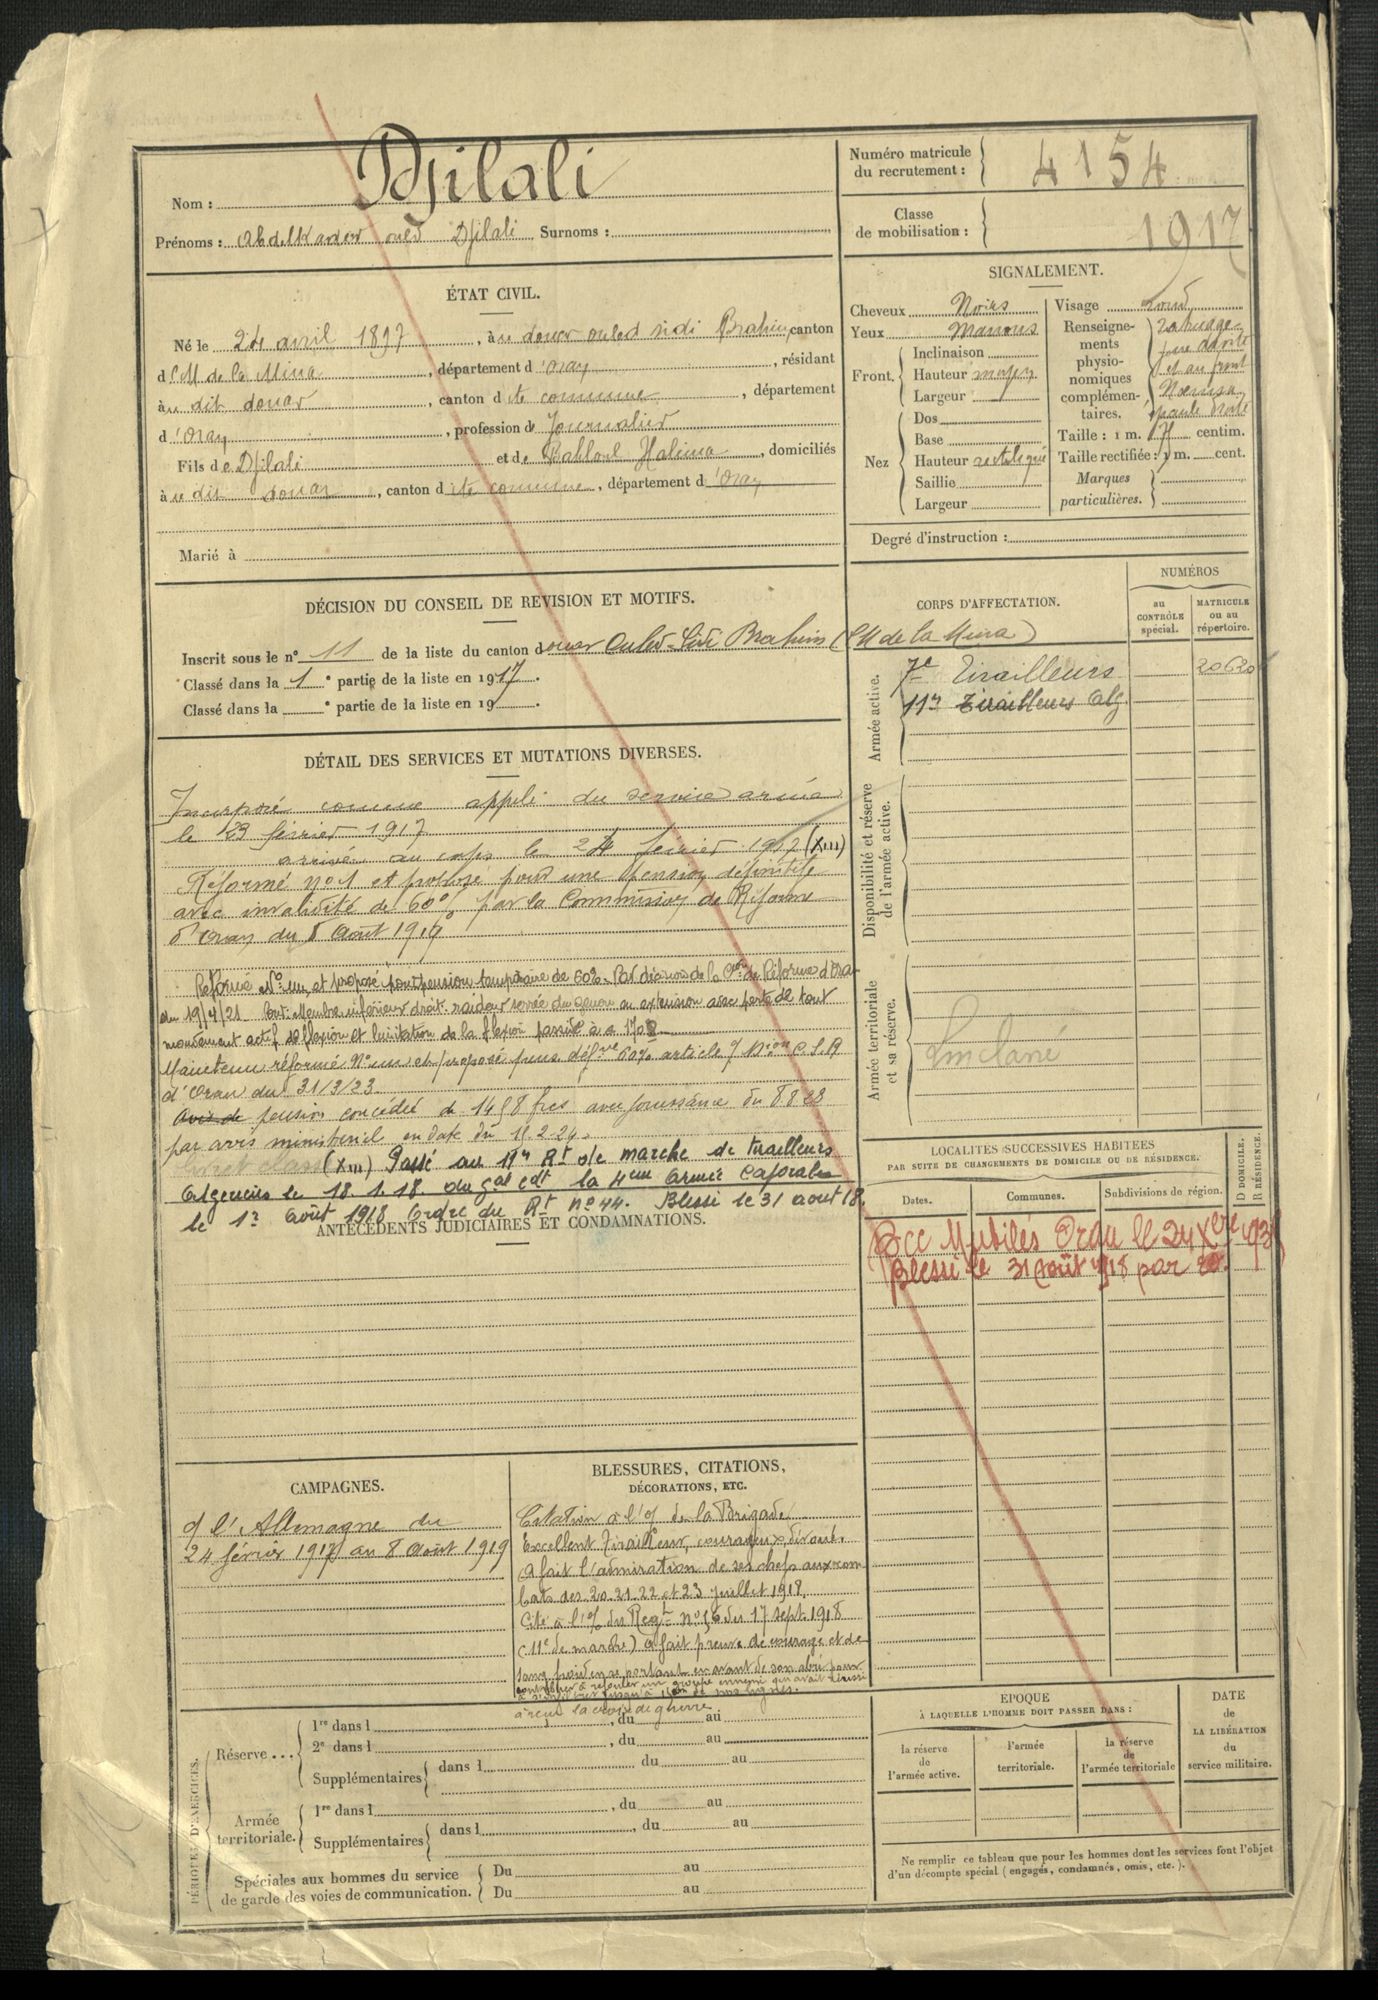 Nom : Djilali
Prénoms : Abdelkader ould Djilali Surnoms :
Numéro matricule
du recrutement : 4154
Classe
de mobilisation : 1917
ÉTAT CIVIL.
Né le 24 avril 1897, à u douar ouled sidi Brahim, canton
d CM de la Mina, département d'Oran, résidant
à u dit douar, canton d ite commune, département
d'Oran, profession de Journalier
Fils de Djilali et de Halima, domiciliés
à u dit douar, canton d ite commune, département d'Oran
Marié à
SIGNALEMENT.
Cheveux Noirs
Yeux Marrons
Front. Inclinaison
Hauteur moyen
Largeur
Nez Dos
Base
Hauteur rectiligne
Saillie
Largeur
Visage rond
Renseigne-
ments
physio-
nomiques
complémen-
taires.
tatouage
joue droite
et au front
épaule droite
Taille : 1 m. 71 centim.
Taille rectifiée : 1 m. cent.
Marques
particulières.
Degré d'instruction :
DÉCISION DU CONSEIL DE REVISION ET MOTIFS.
Inscrit sous le n° 11 de la liste du canton douar Ouled-Sidi Brahim (CM de la Mina)
Classé dans la 1e partie de la liste en 1917.
Classé dans la e partie de la liste en 19 .
CORPS D'AFFECTATION.
NUMÉROS
au
CONTRÔLE
spécial.
MATRICULE
ou au
répertoire.
Armée active.
7e Tirailleurs 20620
11e Tirailleurs Alg.
Disponibilité et réserve
de l'armée active.
Armée territoriale
et sa réserve.
DÉTAIL DES SERVICES ET MUTATIONS DIVERSES.
Incorporé comme appelé du service armé
le 23 février 1917
arrivé au corps le 24 février 1917 (XIII)
Réformé n°1 et proposé pour une pension définitive
avec invalidité de 60% par la Commission de Réforme
d'Oran du 8 Août 1919
Réformé N° un et proposé pour pension temporaire de 60% Par décision de la Con de Réforme d'Oran
du 19/4/21 Membre inférieur droit. raideur serrée du genou en extension avec perte de tout
mouvement actif de flexion et limitation de la flexion passive à 170°
Maintenu réformé N° un et proposé pens. défve 60% article 7 Don C.S.R
d'Oran du 31/3/23.
Avis de pension concédée de 1458 frcs avec jouissance du
par avis ministeriel en date du 15-2-24.
(XIII) Passé au 11e Rt de marche de tirailleurs
Algeriens le 18.1.18. du gal cdt la 4eme armée Caporal
le 1er Août 1918 Ordre du Rt n° 44. Blessé le 31 aout 18.
ANTÉCÉDENTS JUDICIAIRES ET CONDAMNATIONS.
LOCALITÉS SUCCESSIVES HABITÉES
PAR SUITE DE CHANGEMENTS DE DOMICILE OU DE RÉSIDENCE.
Dates. Communes. Subdivisions de région. D DOMICILE. R RÉSIDENCE.
Mutilés Oran le 24 Xbre
Blessé le 31 Août 1918 par
CAMPAGNES.
c/ l'Allemagne du
24 février 1917 au 8 Août 1919
BLESSURES, CITATIONS,
DÉCORATIONS, ETC.
Citation à l'o/ de la Brigade
Excellent Tirailleur, courageux,
a fait l'admiration de ses chefs aux com
bats des 20.21.22 et 23 juillet 1918.
Cité à l'o/ du Regt n° 56 du 17 sept 1918
(11e de marche) a fait preuve de courage et de
sang froid en se portant en avant de son abri pour
contribuer à refouler un groupe ennemi qui avait réussi
de nos lignes.
a reçu la croix de guerre
PÉRIODES D'EXERCICES.
Réserve ...
1re dans l , du au
2e dans l , du au
Supplémentaires dans l du au
Armée
territoriale.
1re dans l , du au
Supplémentaires dans l , du au
Spéciales aux hommes du service
de garde des voies de communication.
Du au
Du au
EPOQUE
À LAQUELLE L'HOMME DOIT PASSER DANS :
la réserve
de
l'armée active.
l'armée
territoriale.
la réserve
de
l'armée territoriale
DATE
de
LA LIBÉRATION
du
service militaire.
Ne remplir ce tableau que pour les hommes dont les services font l'objet
d'un décompte spécial (engagés, condamnés, omis, etc.).